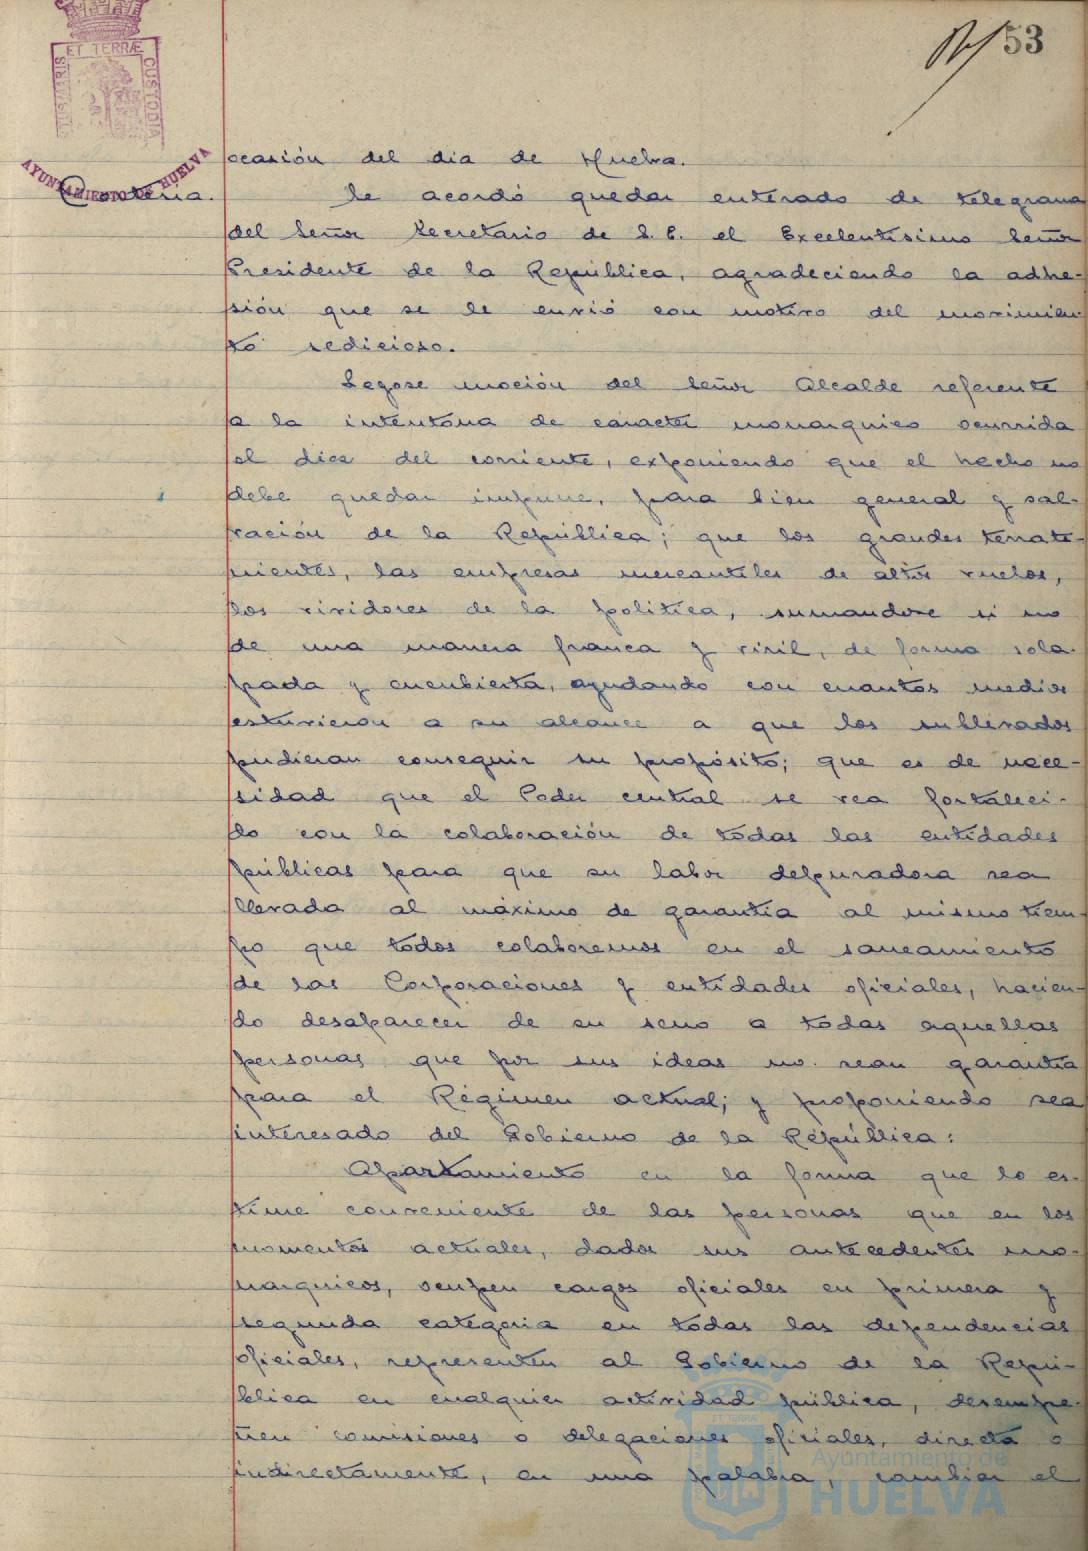 53
ET TERRÆ
CUSTODIA
AYUNTAMIENTO DE HUELVA
ocasión del dia de Huelva.
Se acordó quedar enterado de telegrama
del Señor Secretario de S. E. el Excelentísimo Señor
Presidente de la República, agradeciendo la adhe-
sión que se le envió con motivo del movimien-
to sedicioso.
Leyose moción del Señor Alcalde referente
a la intentona de caracter monarquico ocurrida
el diez del corriente, exponiendo que el hecho no
debe quedar impune, para bien general y sal-
vación de la República; que los grandes terrate-
nientes, las empresas mercantiles de altos vuelos,
los vividores de la politica, sumandose si no
de una manera franca y viril, de forma sola-
pada y encubierta, ayudando con cuantos medios
estuvieron a su alcance a que los sublevados
pudieran conseguir su propósito; que es de nece-
sidad que el Poder central se vea fortaleci-
do con la colaboración de todas las entidades
públicas para que su labor depuradora sea
llevada al máximo de garantia al mismo tiem-
po que todos colaboremos en el saneamiento
de las Corporaciones y entidades oficiales, hacien-
do desaparecer de su seno a todas aquellas
personas que por sus ideas no sean garantia
para el Régimen actual; y proponiendo sea
interesado del Gobierno de la República:
Apartamiento en la forma que lo es-
time conveniente de las personas que en los
momentos actuales, dados sus antecedentes mo-
narquicos, ocupen cargos oficiales en primera y
segunda categoria en todas las dependencias
oficiales, representen al Gobierno de la Repú-
blica en cualquier actividad pública, desempe-
ñen comisiones o delegaciones oficiales, directa o
indirectamente, en una palabra, cambiar el
ET TERRÆ
Ayuntamiento de
HUELVA